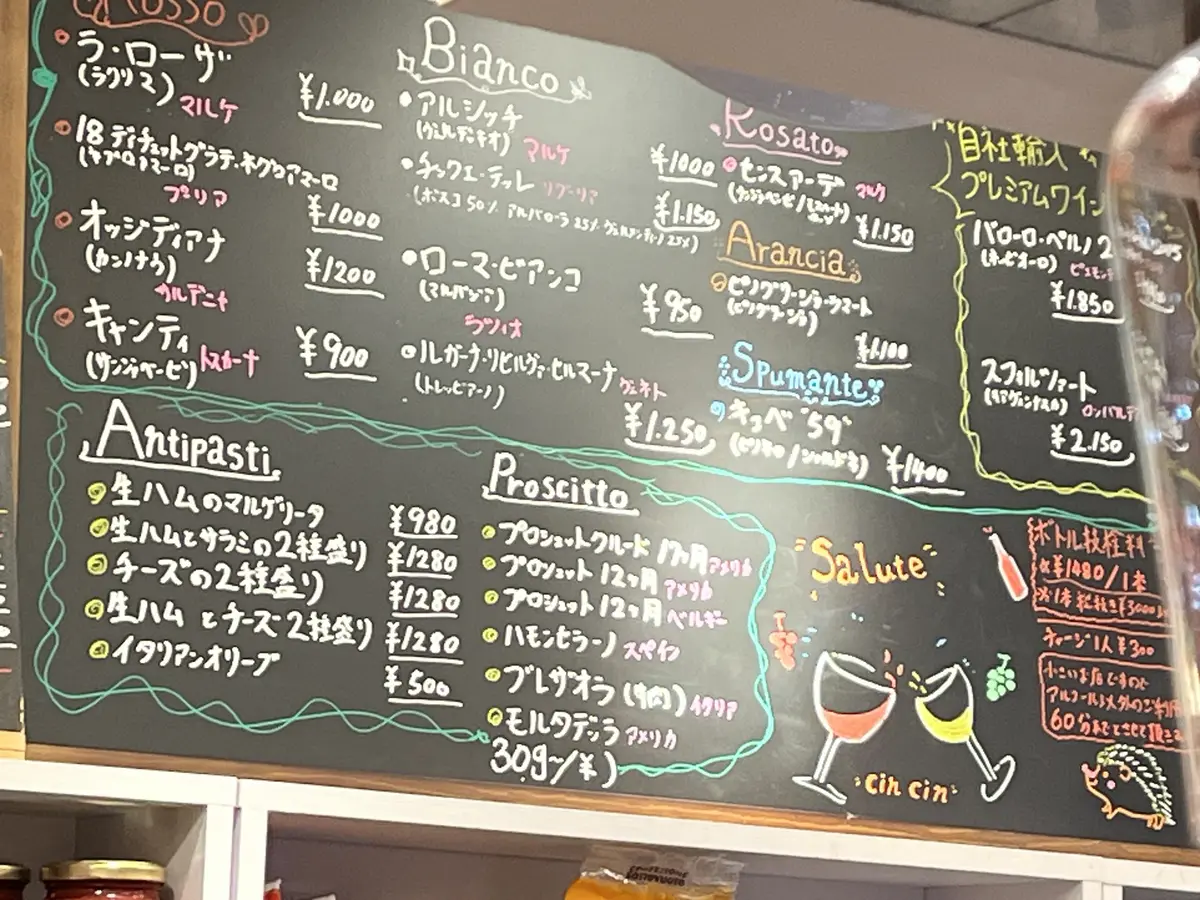 Rosso
ラ・ローザ
(ラクリマ)
マルケ
¥1.000
18 ディチェットグラディ・ネグロアマーロ
(ネグロアマーロ)
プーリア
¥1000
オッジディアナ
(カンノナウ)
サルデニャ
¥1200
キャンティ
(サンジョベーゼ)
トスカーナ
¥900
Bianco
アルシッチ
(ヴェルディッキオ)
マルケ
¥1000
チンクエ・テッレ
リグーリア
(ボスコ50% アルバローラ25% ヴェルメンティーノ25%)
¥1.150
ローマ・ビアンコ
(マルバジア)
ラツィオ
¥950
(トレッビアーノ)
ヴェネト
¥1.250
Rosato
センスアーデ
マルケ
¥1.150
Arancia
ピノグリージョ・ラマート
(ピノグリージョ)
¥1.100
Spumante
キュベ "59"
¥1400
自社輸入
プレミアムワイン
バローロ・ペルノ 2
(ネッビオーロ)
ピエモンテ
¥1.850
スフォルツァート
(キアヴェンナスカ)
ロンバルディ
¥2.150
Antipasti
生ハムのマルゲリータ ¥980
生ハムとサラミの2種盛り ¥1280
チーズの2種盛り ¥1280
生ハムとチーズ2種盛り ¥1280
イタリアンオリーブ ¥500
Proscitto
プロシュットクルード 17ヶ月 アメリカ
プロシュット 12ヶ月 アメリカ
プロシュット 12ヶ月 ベルギー
ハモンセラーノ スペイン
ブレザオラ (牛肉) イタリア
モルタデッラ アメリカ
30g~/¥)
Salute
cin cin
ボトル抜栓料
¥1480/1本
チャージ1人¥300
小さいお店ですので
アルコール以外のご利用
60分までとさせて頂き